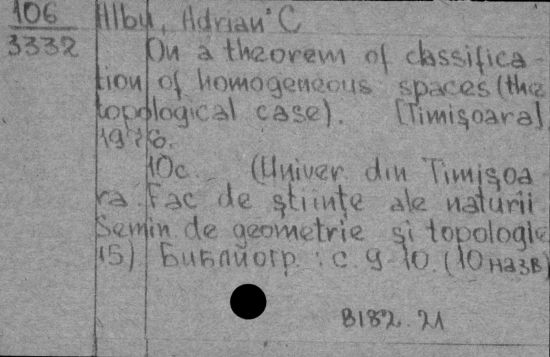 106
3332
Albu, Adrian C
On a theorem of classifica-
tion of homogeneous spaces (the
topological case). [Timişoara]
1976.
10c. (Univer. din Timişoa
ra. Fac de ştiinţe ale naturii
Semin de geometrie şi topologie
15) Библиогр.: с. 9-10. (10 назв)
B182.21